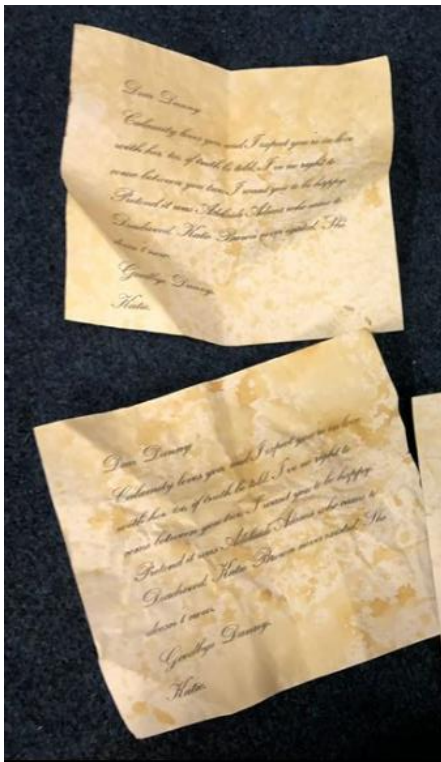 Dear Danny
Calamity loves you and I expect you're in love
with her too, if truth be told. I've no right to
come between you two. I want you to be happy.
Pretend it was Adelaide Adams who came to
Deadwood. Katie Brown never existed. She
doesn't now.
Goodbye Danny.
Katie.
Dear Danny
Calamity loves you and I expect you're in love
with her too, if truth be told. I've no right to
come between you two. I want you to be happy.
Pretend it was Adelaide Adams who came to
Deadwood. Katie Brown never existed. She
doesn't now.
Goodbye Danny.
Katie.